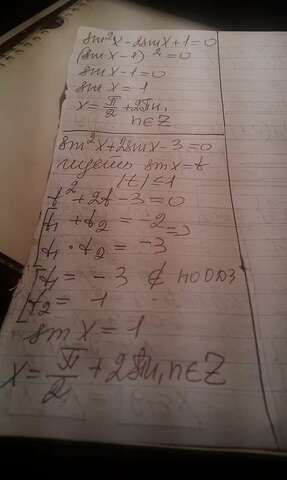 sin²x - 2sinx + 1 = 0
(sinx - 1)² = 0
sinx - 1 = 0
sinx = 1
x = π/2 + 2πn,
n∈Z
sin²x + 2sinx - 3 = 0
sinx = t
|t| ≤ 1
t² + 2t - 3 = 0
t₁ + t₂ = -2 =>
t₁ · t₂ = -3
t₁ = -3 ∉ по ОДЗ
t₂ = 1
sinx = 1
x = π/2 + 2πn, n∈Z